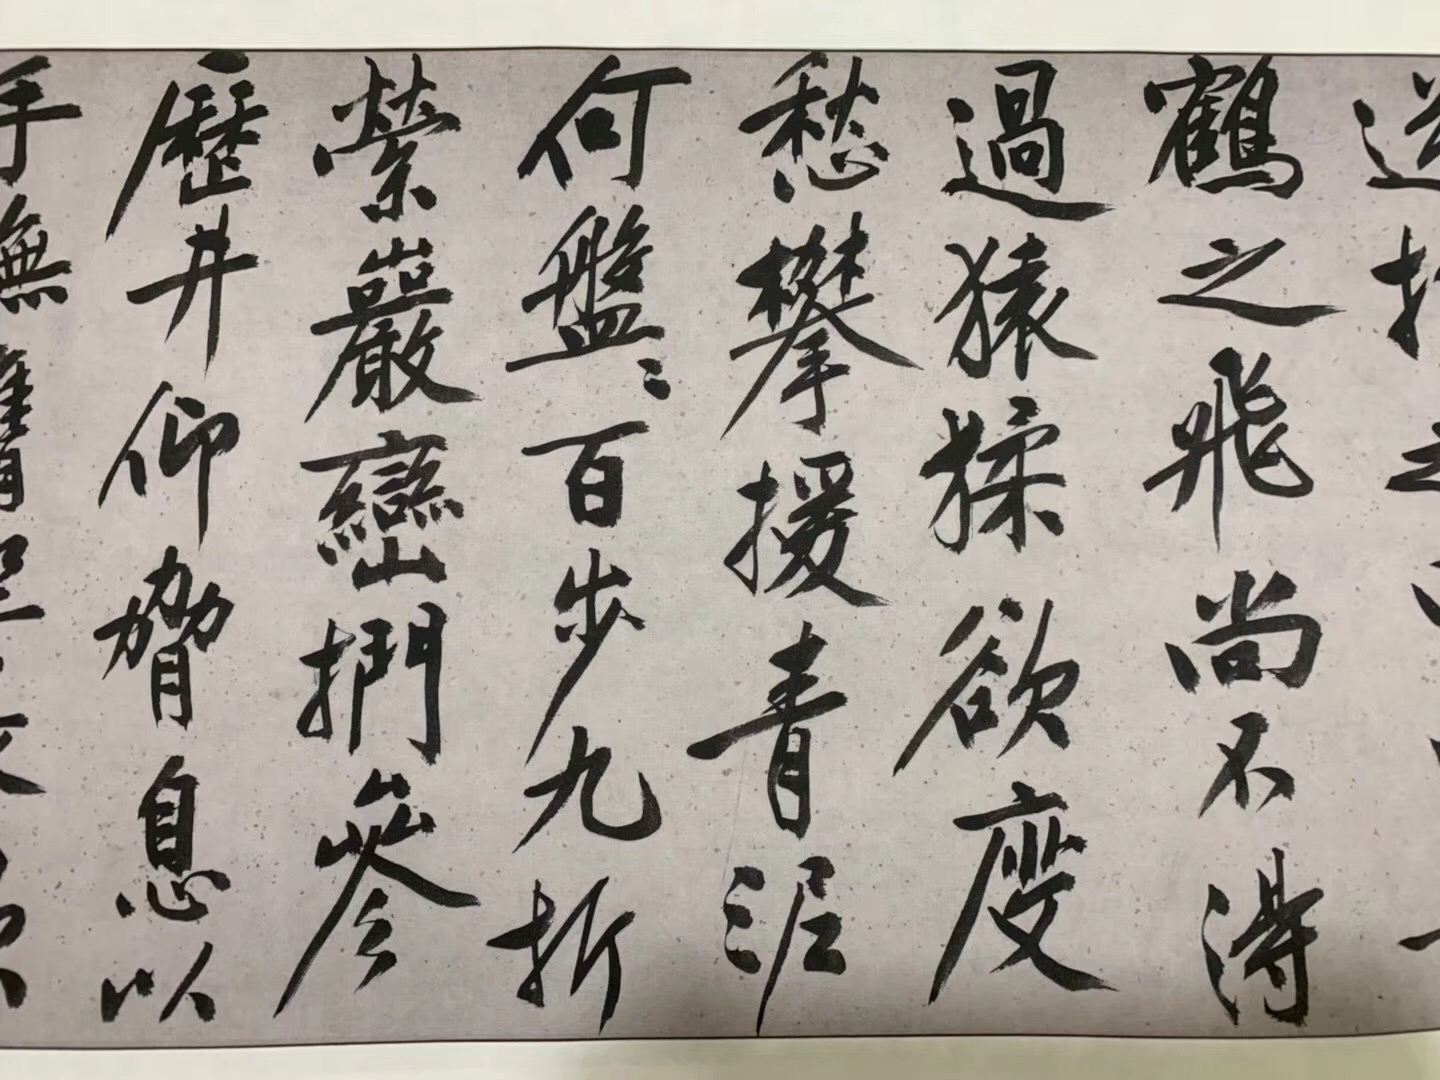 逆折之
鶴之飛尚不得
過猿猱欲度
愁攀援青泥
何盤〻百步九折
縈巖巒捫參
歷井仰脅息以
手撫膺坐